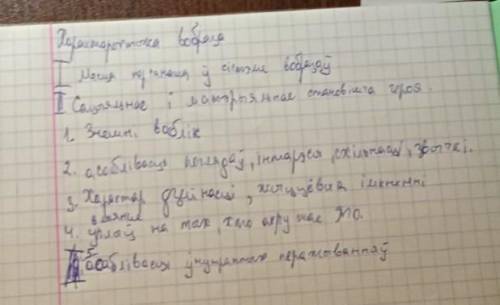 Характарыстыка вобраза
I Месца персанажа ў сістэме вобразаў
II Сацыяльнае і матэрыяльнае становішча героя.
1. Знешні воблік
2. асаблівасці поглядаў, інтарэсы, схільнасці, звычкі.
3. Характар дзейнасці, жыццёвыя імкненні
4. уплыў на тых, хто акружае яго.
5. асаблівасці унутраных перажыванняў